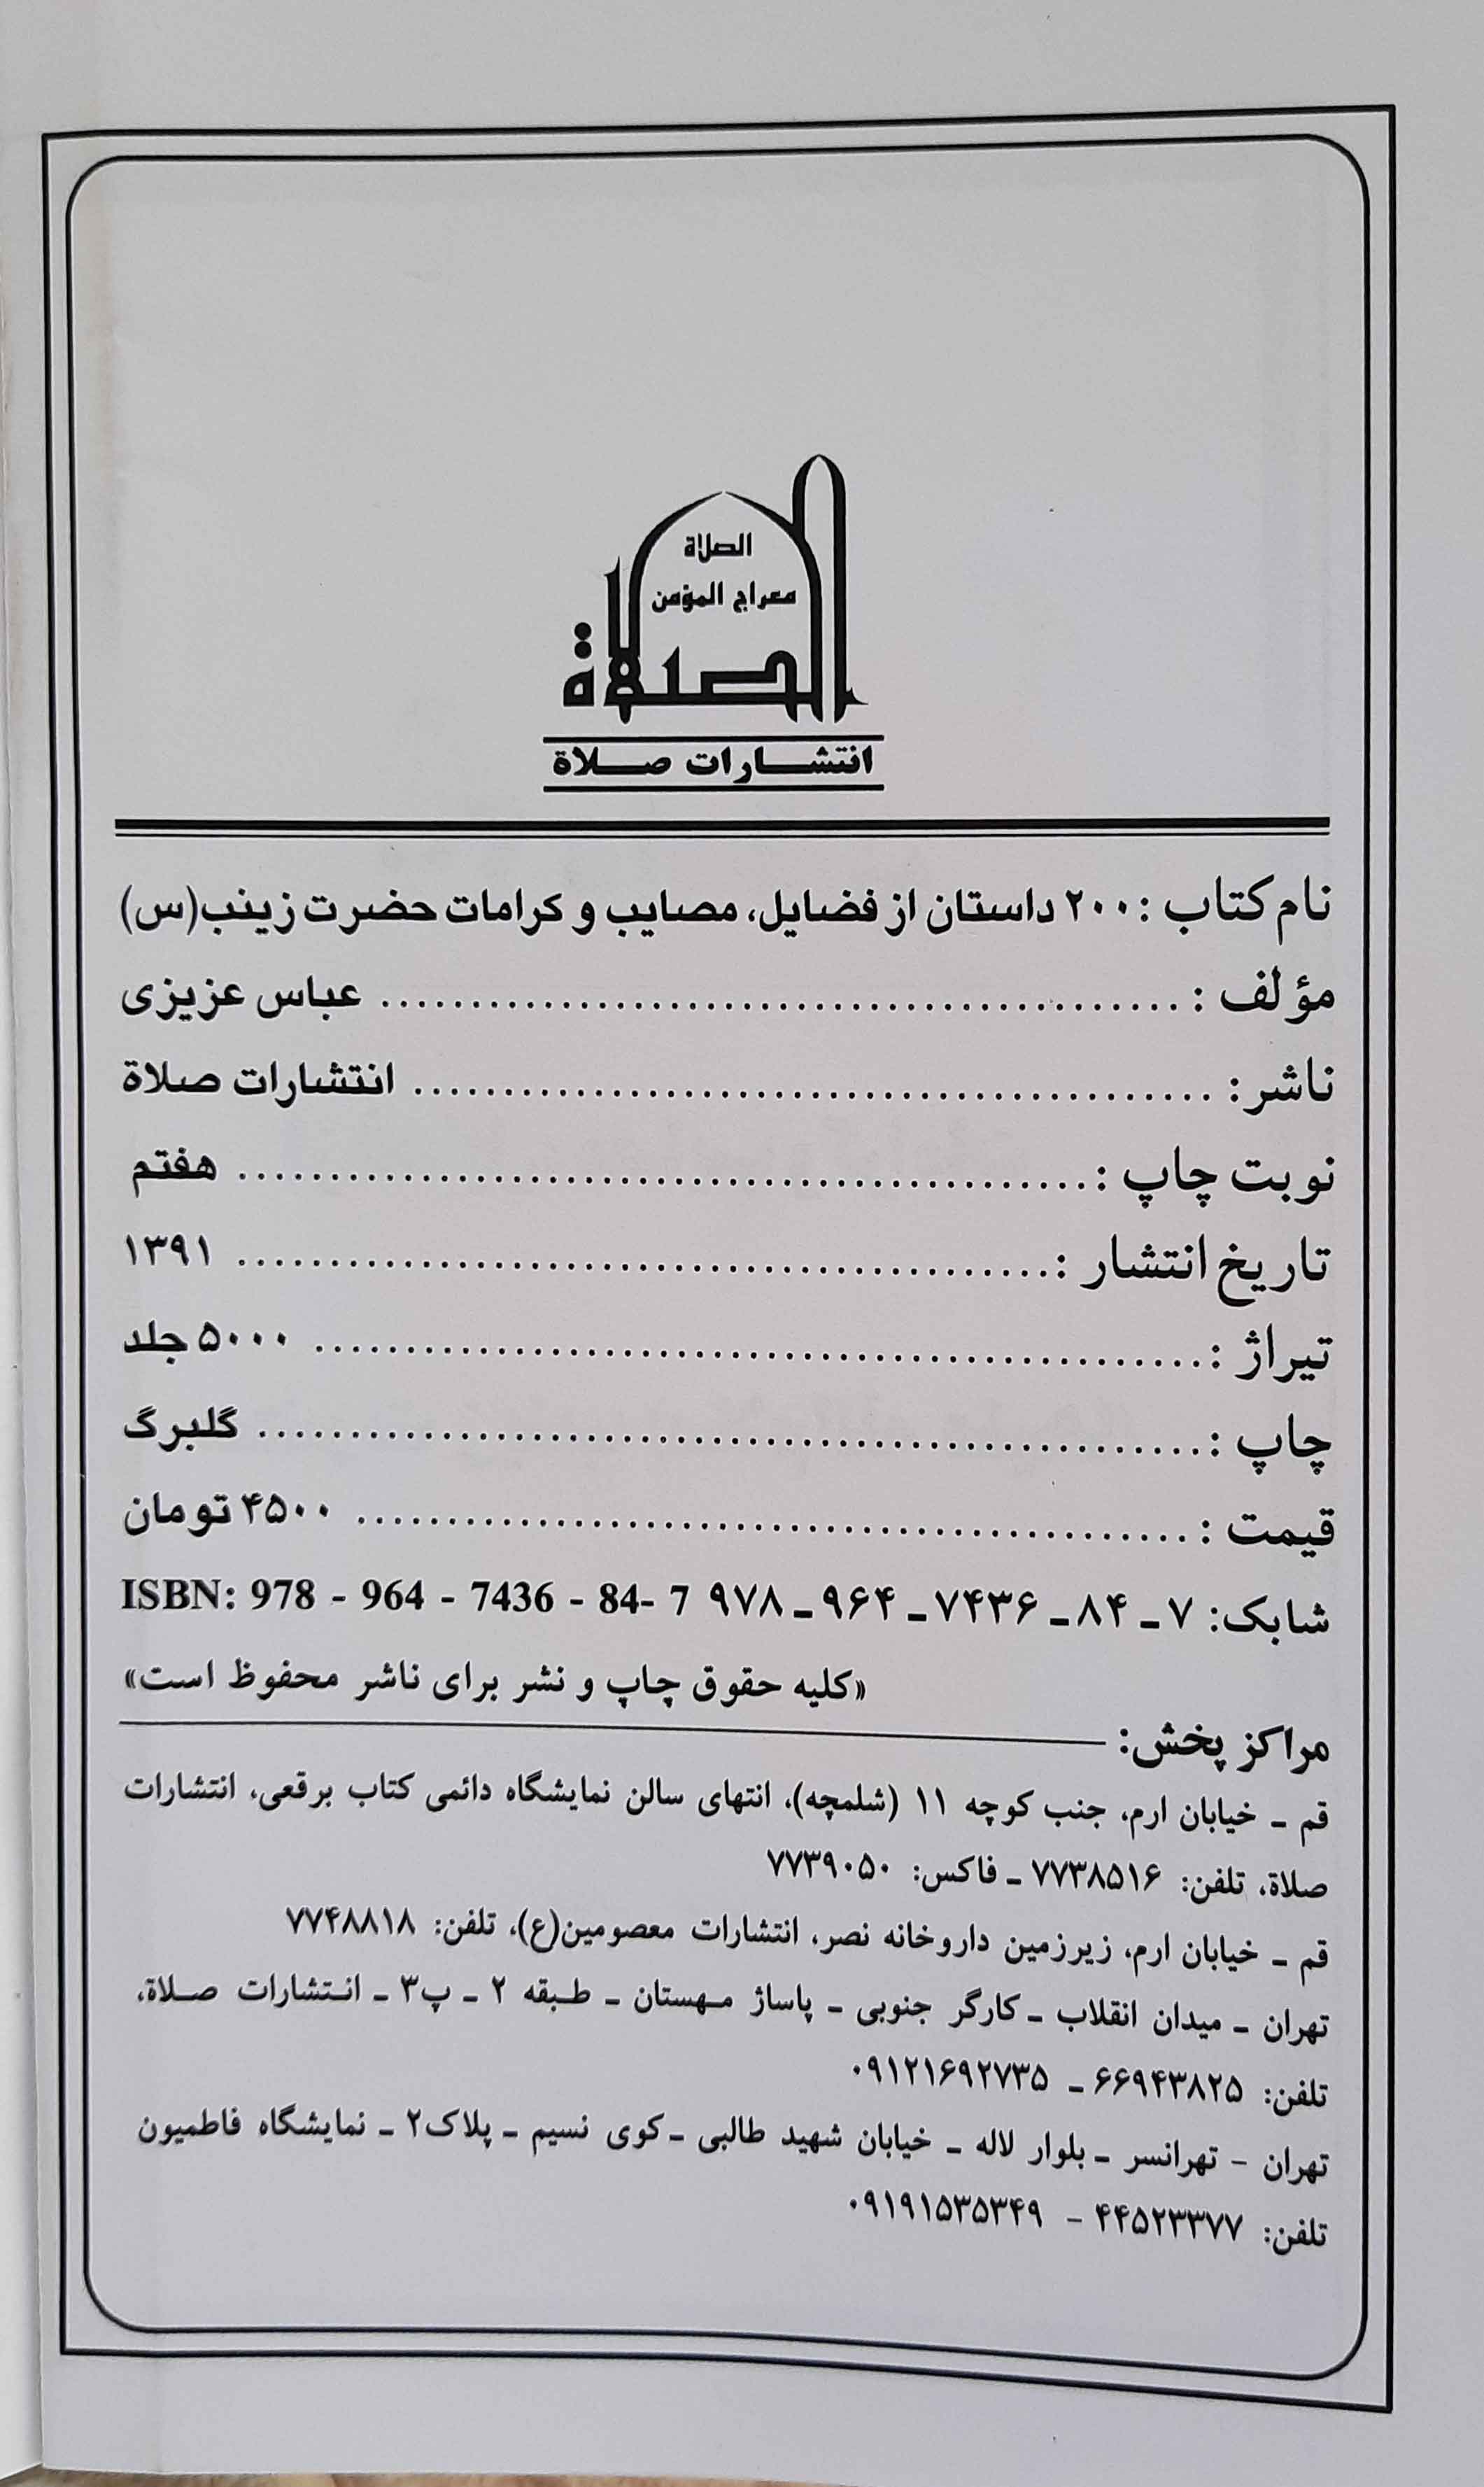 الصلاة
معراج المؤمن
الصلاة
انتشارات صلاة
نام کتاب : ۲۰۰ داستان از فضایل، مصایب و کرامات حضرت زینب(س)
مؤلف : ............................................ عباس عزیزی
ناشر : ............................................ انتشارات صلاة
نوبت چاپ : ............................................ هفتم
تاریخ انتشار : ............................................ ۱۳۹۱
تیراژ : ............................................ ۵۰۰۰ جلد
چاپ : ............................................ گلبرگ
قیمت : ............................................ ۴۵۰۰ تومان
شابک: ۷ ـ ۸۴ ـ ۷۴۳۶ ـ ۹۶۴ ـ ۹۷۸ ISBN: 978 - 964 - 7436 - 84- 7
«کلیه حقوق چاپ و نشر برای ناشر محفوظ است»
مراکز پخش:
قم ـ خیابان ارم، جنب کوچه ۱۱ (شلمچه)، انتهای سالن نمایشگاه دائمی کتاب برقعی، انتشارات
صلاة، تلفن: ۷۷۳۸۵۱۶ ـ فاکس: ۷۷۳۹۰۵۰
قم ـ خیابان ارم، زیرزمین داروخانه نصر، انتشارات معصومین(ع)، تلفن: ۷۷۴۸۸۱۸
تهران ـ میدان انقلاب ـ کارگر جنوبی ـ پاساژ مهستان ـ طبقه ۲ ـ پ۳ ـ انتشارات صلاة،
تلفن: ۶۶۹۴۳۸۲۵ ـ ۰۹۱۲۱۶۹۲۷۳۵
تهران - تهرانسر ـ بلوار لاله ـ خیابان شهید طالبی ـ کوی نسیم ـ پلاک۲ ـ نمایشگاه فاطمیون
تلفن: ۴۴۵۲۳۳۷۷ - ۰۹۱۹۱۵۳۵۳۴۹